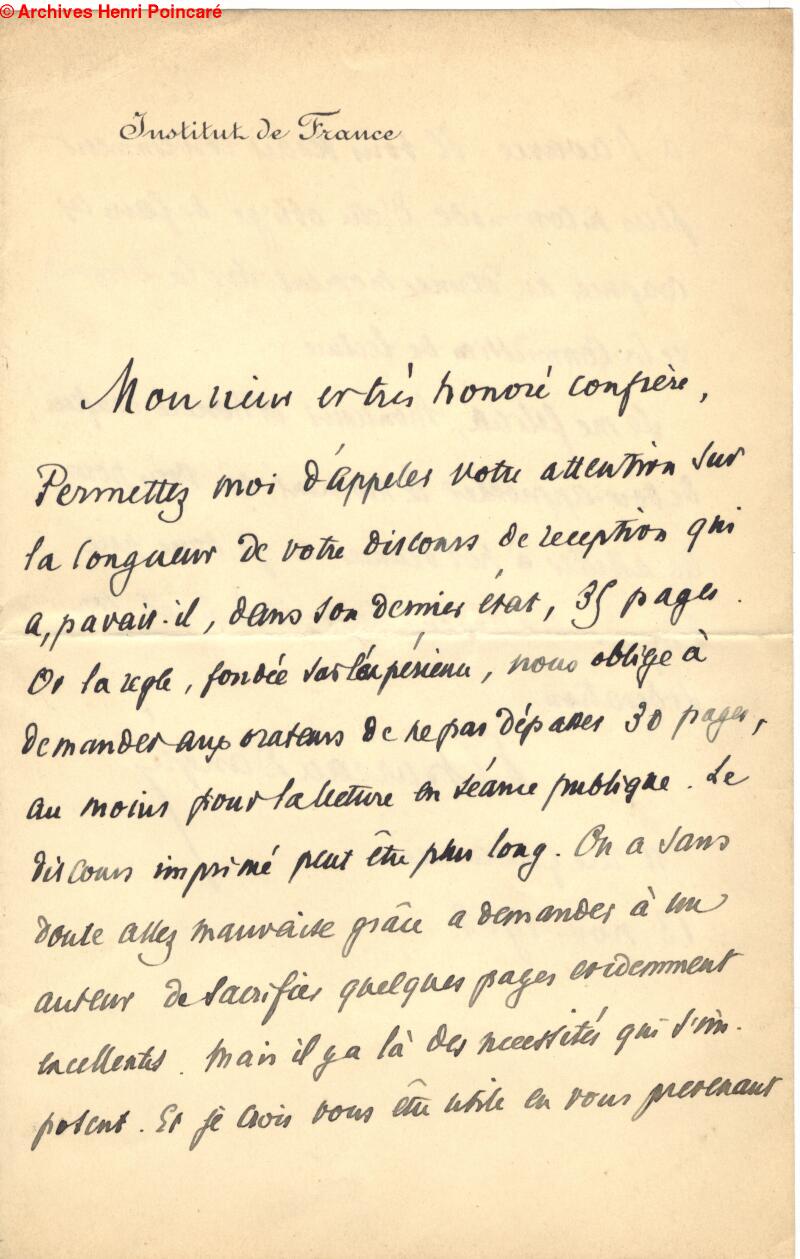 © Archives Henri Poincaré
Institut de France
Monsieur et très honoré confrère,
Permettez moi d'appeler votre attention sur
la longueur de votre discours de reception qui
a, parait-il, dans son dernier état, 35 pages.
Or la regle, fondée sur l'expérience, nous oblige à
demander aux orateurs de ne pas dépasser 30 pages,
au moins pour la lecture en séance publique. Le
discours imprimé peut être plus long. On a sans
doute assez mauvaise grâce a demander à un
auteur de sacrifier quelques pages evidemment
excellentes. Mais il y a là des necessités qui s'im-
posent. Et je crois vous être utile en vous prevenant